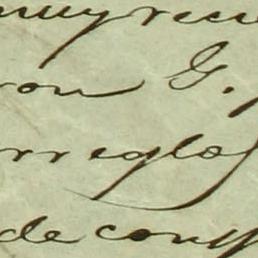 muy reci
ron G.
rreglas
de cons